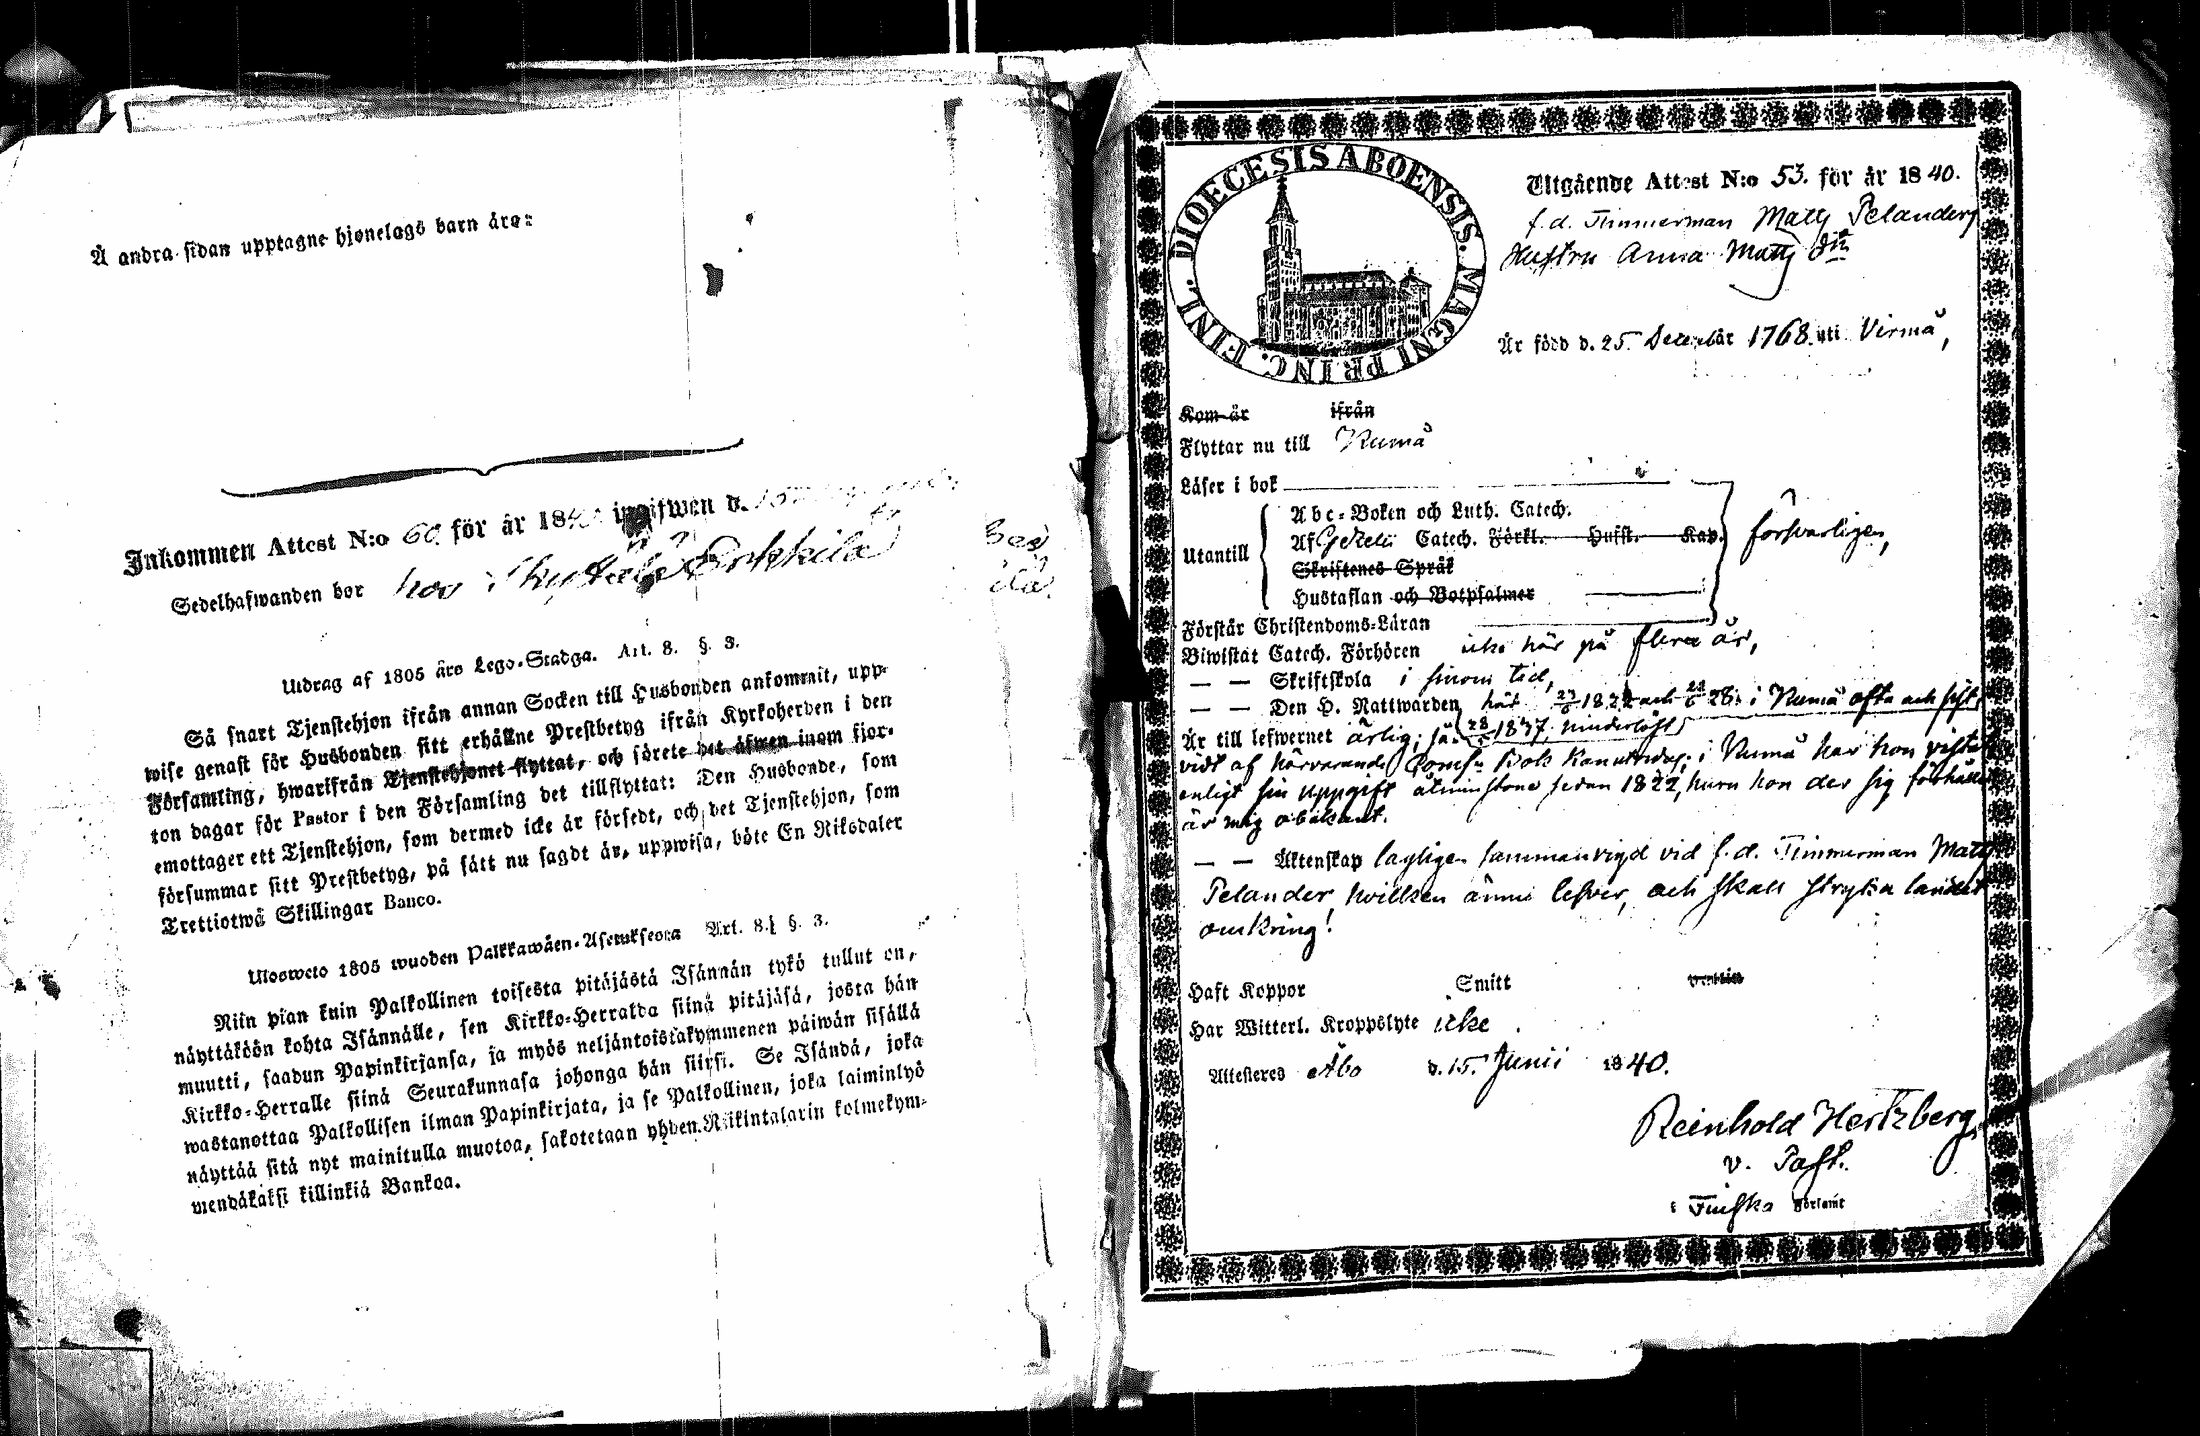 Å andra sidan upptagne hjonelags barn äro:
Inkommen Attest N:o 60. för år 184 ingifwen d. 15
Sedelhafwanden bor hos Erkkilä
Utdrag af 1805 års Lego-Stadga. Art. 8. §. 3.
Så snart Tjenstehjon ifrån annan Socken till Husbonden ankommit, upp-
wise genast för Husbonden sitt erhållne Prestbetyg ifrån Kyrkoherden i den
Församling, hwarifrån Tjenstehjonet flyttat, och förete det äfwen inom fjor-
ton dagar för Pastor i den Församling det tillflyttat: Den Husbonde, som
emottager ett Tjenstehjon, som dermed icke är försedt, och det Tjenstehjon, som
försummar sitt Prestbetyg, på sätt nu sagdt är, uppwisa, böte En Riksdaler
Trettiotwå Skillingar Banco.
Ulosweto 1805 wuoden Palkkawäen-Asetuksesta Art. 8. §. 3.
Niin pian kuin Palkollinen toisesta pitäjästä Isännän tykö tullut on,
näyttäköön kohta Isännälle, sen Kirkko-Herralda siinä pitäjäsä, josta hän
muutti, saadun Papinkirjansa, ja myös neljäntoistakymmenen päiwän sisällä
Kirkko-Herralle siinä Seurakunnasa johonga hän siirsi. Se Isändä, joka
wastanottaa Palkollisen ilman Papinkirjata, ja se Palkollinen, joka laiminlyö
näyttää sitä nyt mainitulla muotoa, sakotetaan yhden Riikintalarin kolmekym-
mendäkaksi killinkiä Bankoa.
DIOECESIS ABOENSIS. MAGNI PRINC. FINL.
Utgående Attest N:o 53. för år 1840.
f.d. Timmerman Matts Pelanders
Hustru Anna Matts dtr
Är född d. 25 Decemb är 1768 uti Virmå,
Kom år ifrån
Flyttar nu till Kumå
Läser i bok
Abc-Boken och Luth. Catech.
Utantill Af Gezelii Catech. Förkl. Hufst. Kap. försvarligen,
Skriftenes Språk
Hustaflan och Botpsalmer
Förstår Christendoms-Läran
Biwistat Catech. Förhören icke här på flera år,
— — Skriftskola i sinom tid,
— — Den H. Nattwarden här 1822 och 28. i Kumå ofta och sist
Är till lefwernet ärlig; så 1837.
vidt af härvarande Comm. Bok kan utredas; i Kumå har hon vistats
enligt sin uppgift åtminstone sedan 1822, huru hon der sig förhållit
är mig obekant.
— — Äktenskap lagligen sammanvigd vid f.d. Timmerman Matts
Pelander, hvilken ännu lefver, och skall stryka landet
omkring!
Haft Koppor Smitt
Har Witterl. Kroppslyte icke.
Attesteres Åbo d. 15. Junii 1840.
Reinhold Hertzberg,
v. Past.
i Finska Församl